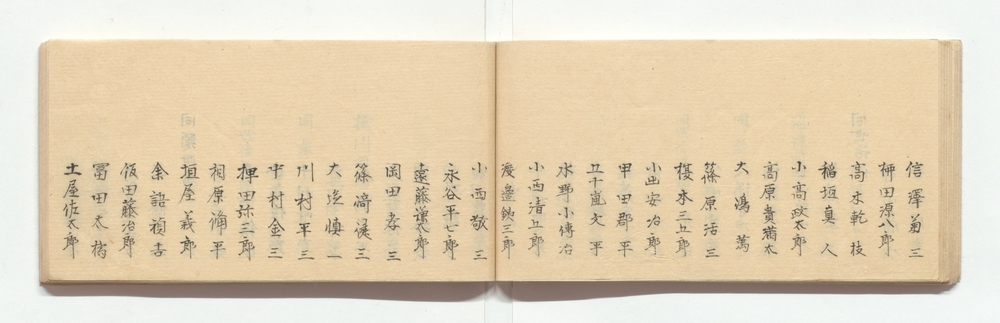 信澤菊三
柳田源八郎
高木乾枝
稲垣真人
小高政太郎
高原貴猶太
大鴻萬
篠原活三
榎本三五郎
小出安治郎
甲田郡平
五十嵐文平
水野小傳治
小西清五郎
渡邉鉄三郎
小西敬三
永谷平七郎
遠藤讓太郎
岡田孝三
篠﨑俊三
大造慎一
川村平三
中村金三
押田弥三郎
相原浦平
垣屋義郎
余語禎吉
飯田藤治郎
冨田太橘
土屋佐太郎